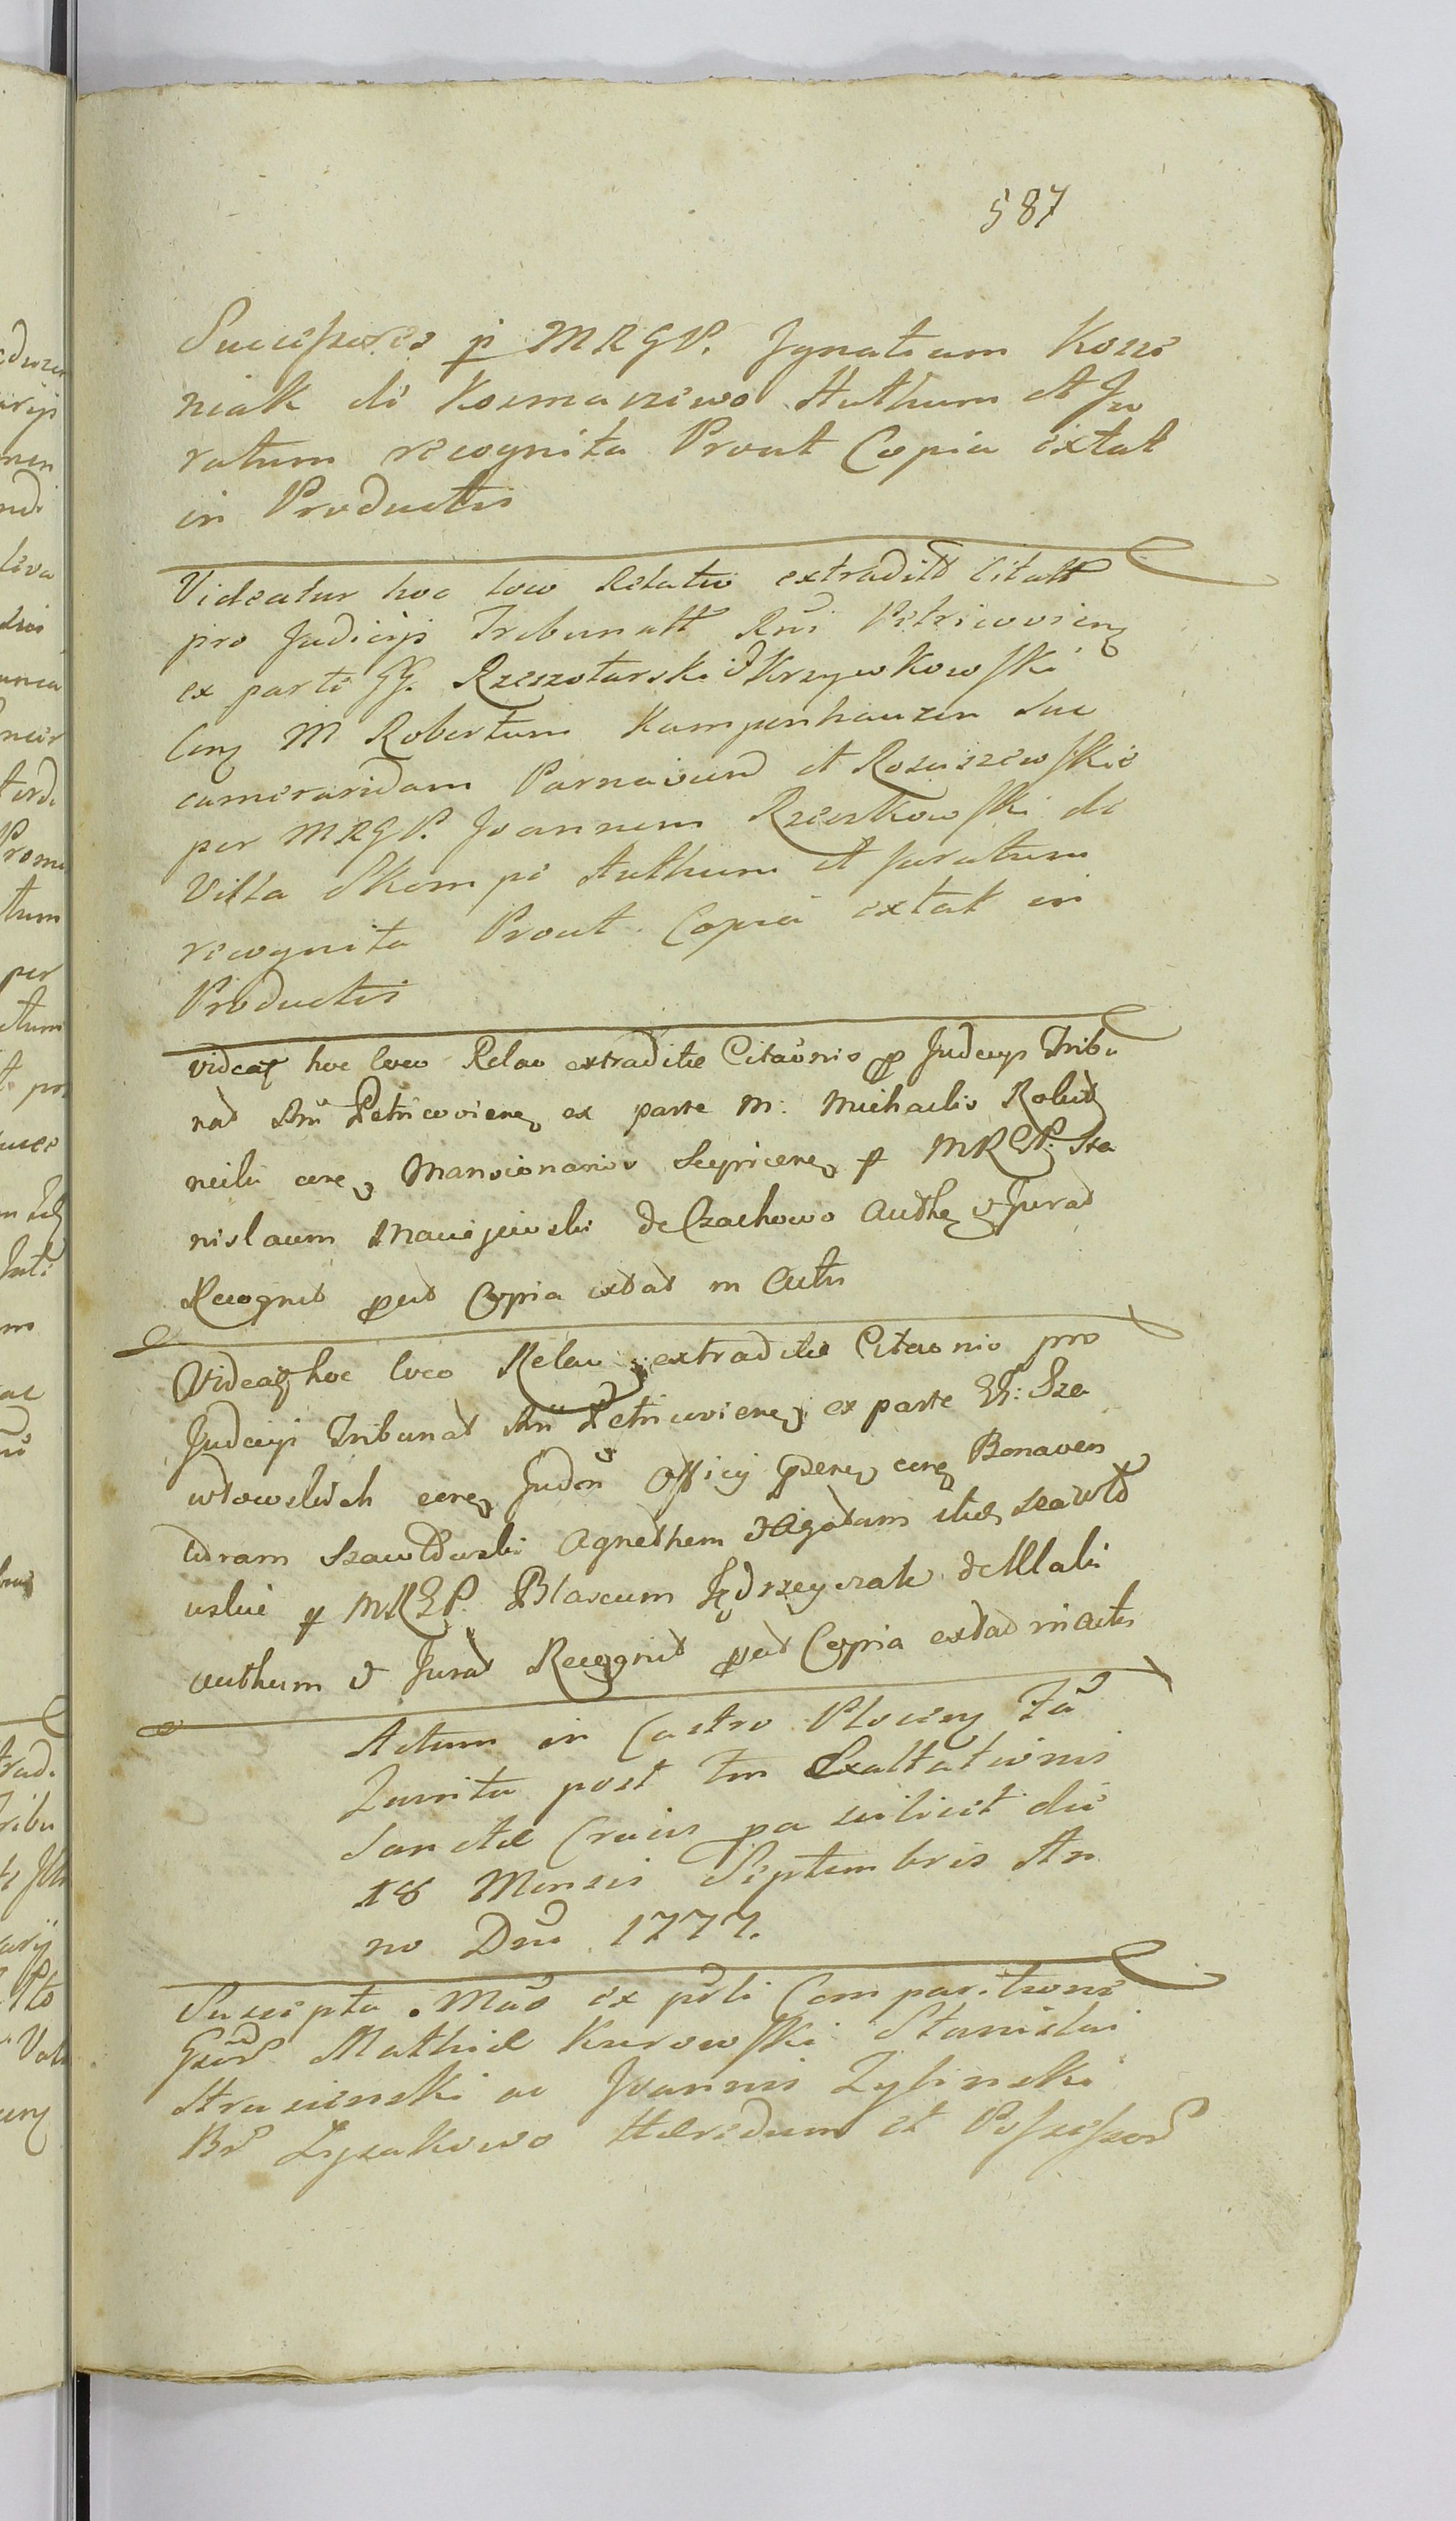 587
Successores p MRGP. Ignatium Kosze
niak de Kosmaczewo Authum et Ju
ratum recognita Prout Copia extat
in Productis
Videatur hoc loco Relatio extradit Citatt
pro Judicijs Tribunall Rni Petricovien
ex parte GG. Rzeszotarski et Krzywkowski
Con M Robertum Kampenhauzen suc
camerarium Parnavien et Rościszewskie
per MRGP. Joannem Rzeszkowski de
Villa Skempe Authum et Juratum
recognita Prout Copia extat in
Productis
Videat hoc loco Relao extradite Citaonis p Judcijs Tribu
nat Rni Petricovien ex parte M. Michaelis
con Mansionarios p MRGP. Sta
nislaum Maciejewski de Czachowo Auth et Jurat
Recognit put Copia extat in Actis
Videat hoc loco Relao extradite Citaonis pro
Judcijs Tribunat Rni Petricovien ex parte GG: Sza
wlowskich con Judm Officij con Bonaven
turam Szawlowski Agnethem et Agatam itid Szawlo
wskie p MRGP. Blasium Jędrzeyczak de
authum et Jurat Recognit put Copia extat in Actis
Actum in Castro Plocen Fa
Quinta post Fm Exaltationis
Sanctæ Crucis pa scilicet die
18 Mensis Septembris An
no Dni 1777.
Suscepta Mao ex psli Comparitione
Gsor Mathiæ Kurowski Stanislai
ac Joannis Zylinski
Br Łyzakowo Hæredum et Possessor